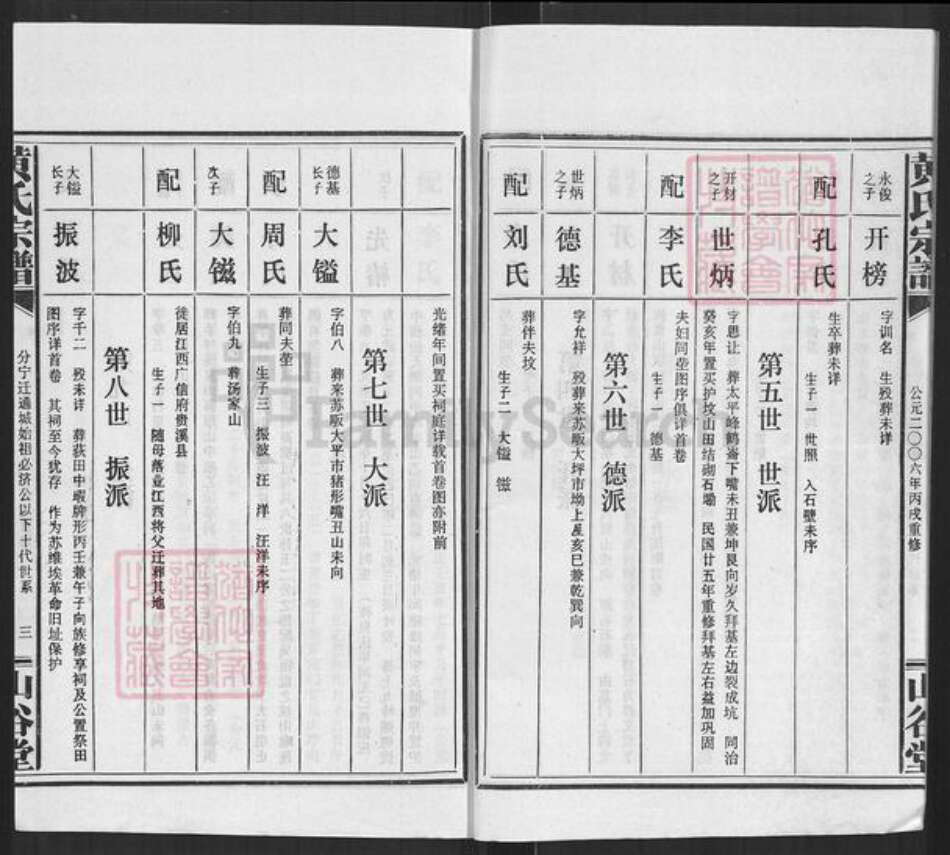 黄氏宗譜
公元二〇〇六年丙戌重修
山谷堂
永俊之子
开榜
字训名 生殁葬未详
配
孔氏
生卒葬未详
生子一 世照 入石壁未序
第五世 世派
开材之子
世炳
字恩让 葬太平峰鹤崙下嘴未丑兼坤艮向岁久拜基左边裂成坑 同治
癸亥年置买护坟山田结砌石塝 民国廿五年重修拜基左右益加巩固
配
李氏
夫妇同茔图序俱详首卷
生子一 德基
第六世 德派
世炳之子
德基
字允祥 殁葬来苏畈大坪市坳上星亥巳兼乾巽向
配
刘氏
葬伴夫坟
生子二 大镒 镃
光绪年间置买祠庭详载首卷图亦附前
第七世 大派
德基长子
大镒
字伯八 葬来苏畈大平市猪形嘴丑山未向
配
周氏
葬同夫茔
生子三 振波 汪 洋 汪洋未序
次子
大镃
字伯九 葬汤家山
配
柳氏
徒居江西广信府贵溪县
生子一 随母落业江西将父迁葬其地
第八世 振派
大镒长子
振波
字千二 殁未详 葬荻田中嘏牌形丙壬兼午子向族修享祠及公置祭田
图序详首卷 其祠至今犹存 作为苏维埃革命旧址保护
黄氏宗譜
分宁迁通城始祖必济公以下十代世系
三
山谷堂
FamilySearch